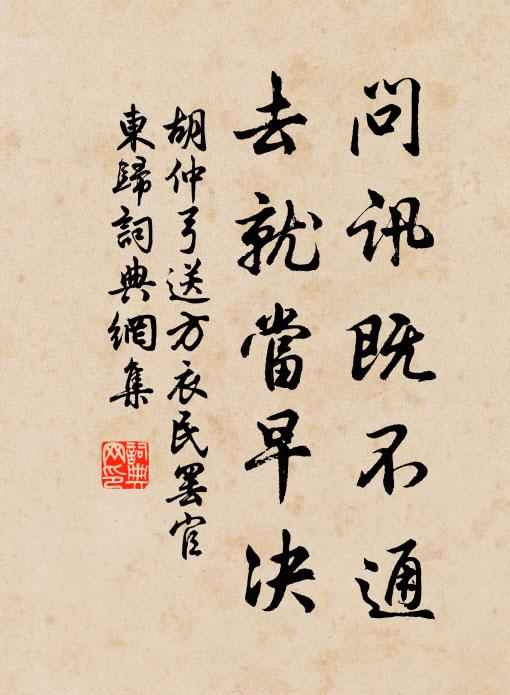 问讯既不通
去就當早决
胡仲弓送方衣民罢官
東歸詞典網集
詞典
网印